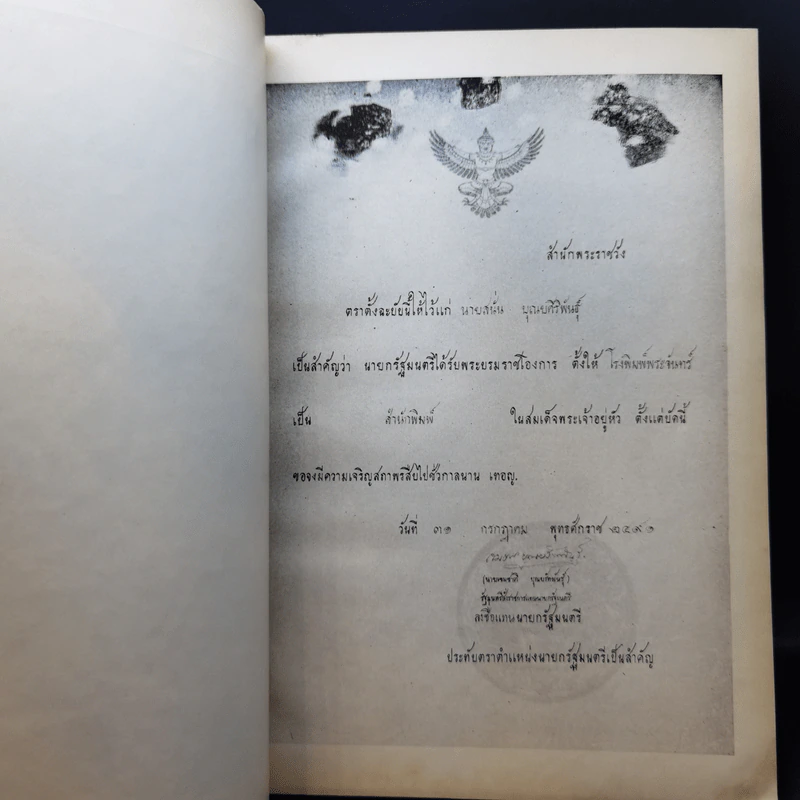 สำนักพระราชวัง
ตราตั้งฉะบับนี้ให้ไว้แก่ นายสนั่น บุณยศิริพันธุ์
เป็นสำคัญว่า นายกรัฐมนตรีได้รับพระบรมราชโองการ ตั้งให้ โรงพิมพ์พระจันทร์
เป็น สำนักพิมพ์ ในสมเด็จพระเจ้าอยู่หัว ตั้งแต่บัดนี้
ขอจงมีความเจริญสถาพรสืบไปชั่วกาลนาน เทอญ.
วันที่ ๓๑ กรกฎาคม พุทธศักราช ๒๔๙๑
ลงชื่อแทนนายกรัฐมนตรี
ประทับตราตำแหน่งนายกรัฐมนตรีเป็นสำคัญ